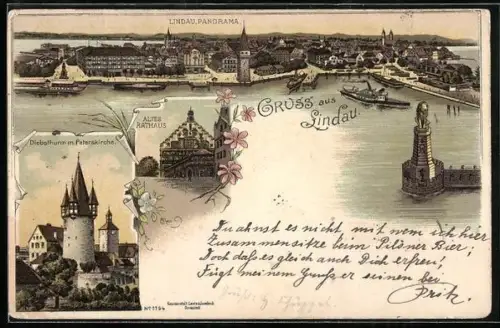 LINDAU, PANORAMA.
GRUSS aus
Lindau.
ALTES
RATHAUS
Diebsthurm m. Peterskirche.
Du ahnst es nicht, mit wem ich hier
Zusammensitze beim Pilsner Bier;
Doch daß es gleich auch Dich erfreu!
Fügt meinem Gruß er seinen bei
Fritz.
No 1794